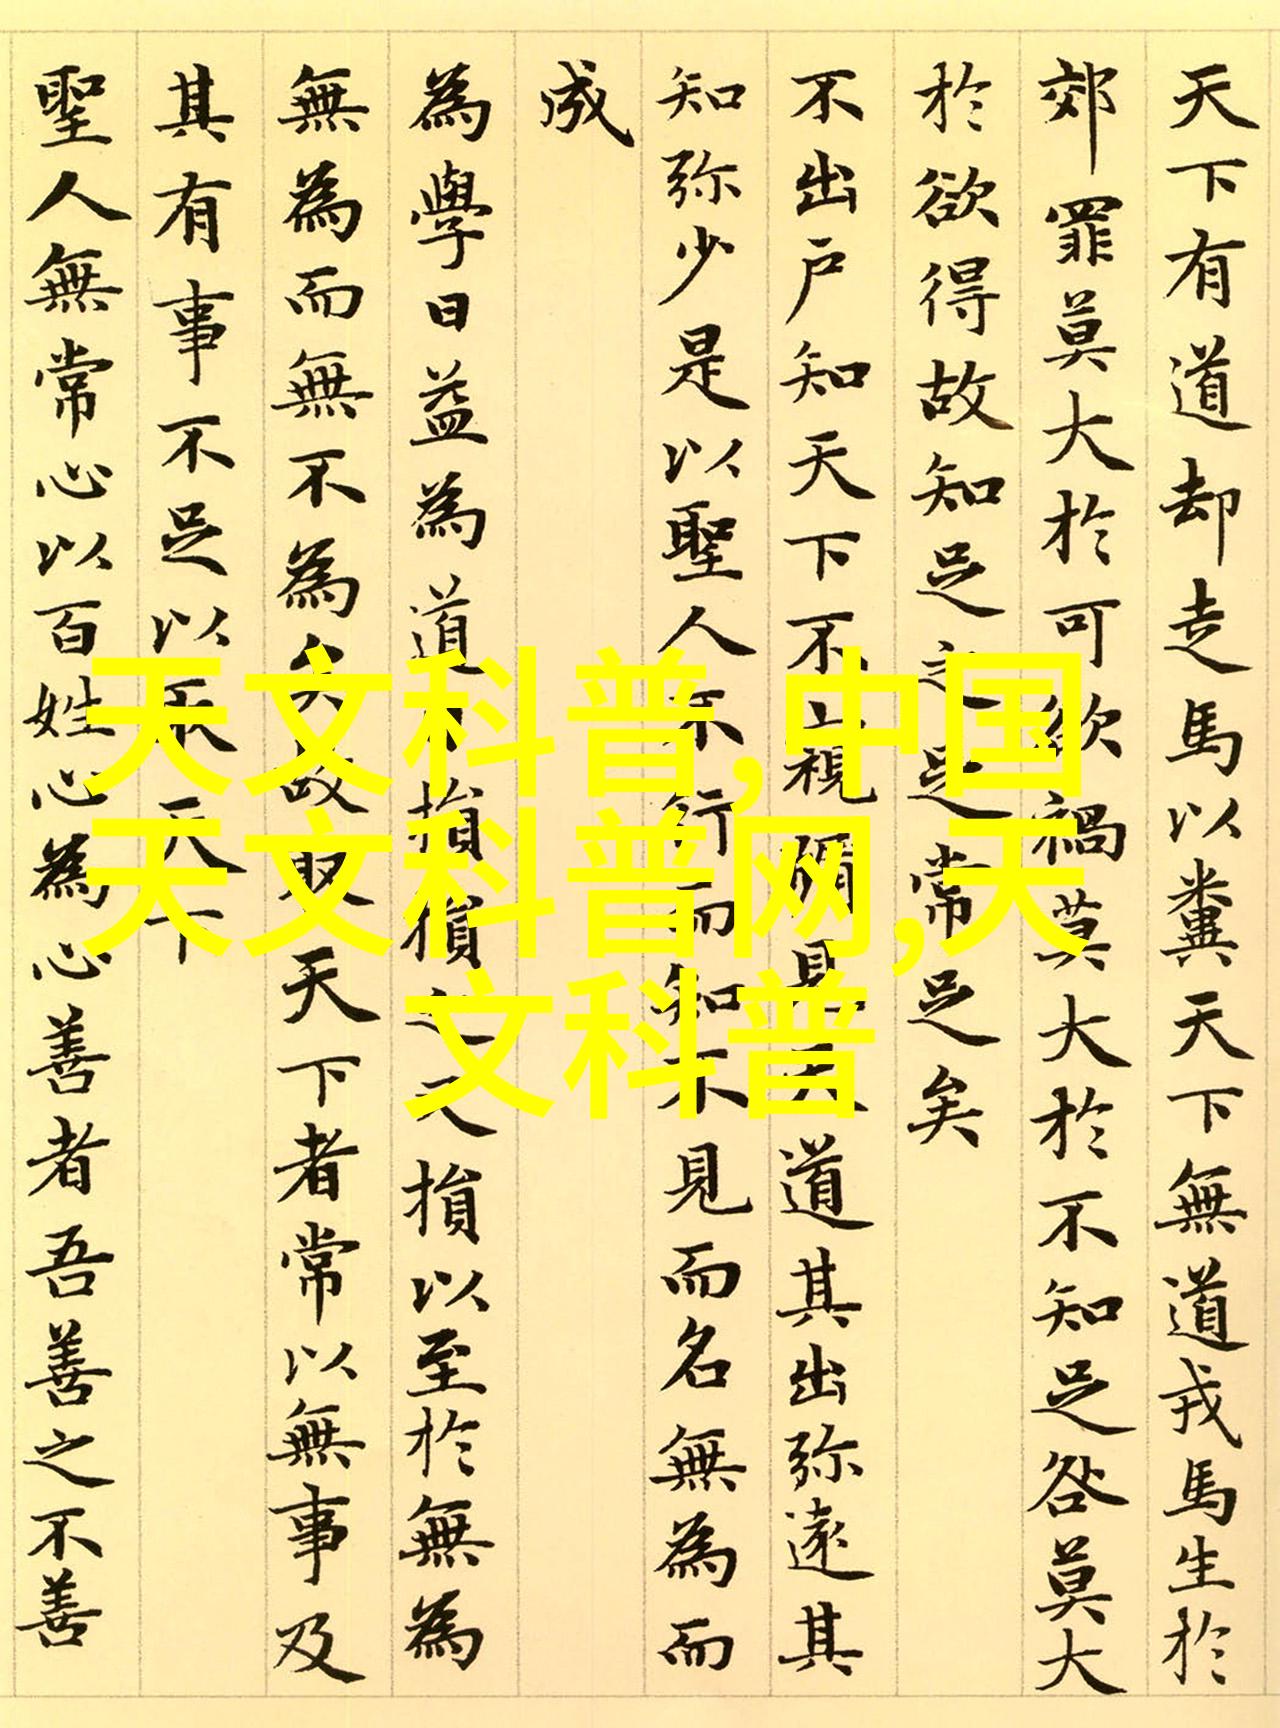 天下有道却走馬以糞天下無道戎馬生於
郊罪莫大於可欲禍莫大於不知足咎莫大
於欲得故知足之足常足矣
不出户知天下不窺牖見天道其出弥遠其
知弥少是以聖人不行而知不見而名無為而
成
為學日益為道日損損之又損以至於無為
無為而無不為矣故取天下者常以無事及
其有事不足以取天下
聖人無常心以百姓心為心善者吾善之不善
天文科普,中国
天文科普网,天
文科普